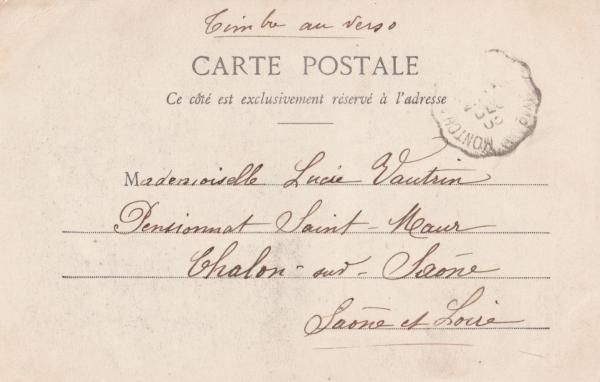 Timbre au verso
CARTE POSTALE
Ce côté est exclusivement réservé à l'adresse
Mademoiselle Lucie Vautrin
Pensionnat Saint-Maur
Chalon-sur-Saône
Saône et Loire